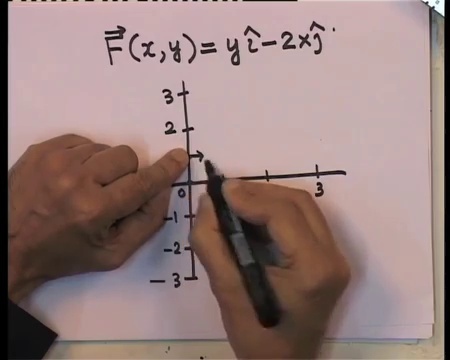 F⃗(x,y) = yî − 2xĵ
3
2
0
3
-1
-2
-3